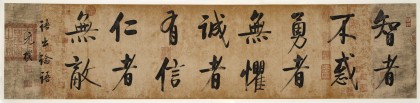 智者
不惑
勇者
無懼
誠者
有信
仁者
無敵
語出論語